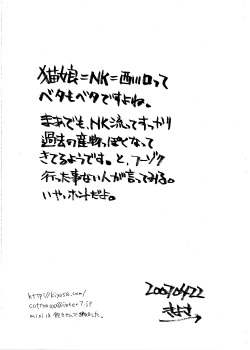 猫娘=NK=西川口って
ベタもベタですよね。
まあでも、NK流ってすっかり
過去の産物っぽくなって
きてるようです。と、フーゾク
行った事ない人が言ってみる。
いや、ホントだよ。
20070422
きよさ
http://kiyosa.com/
mixiは